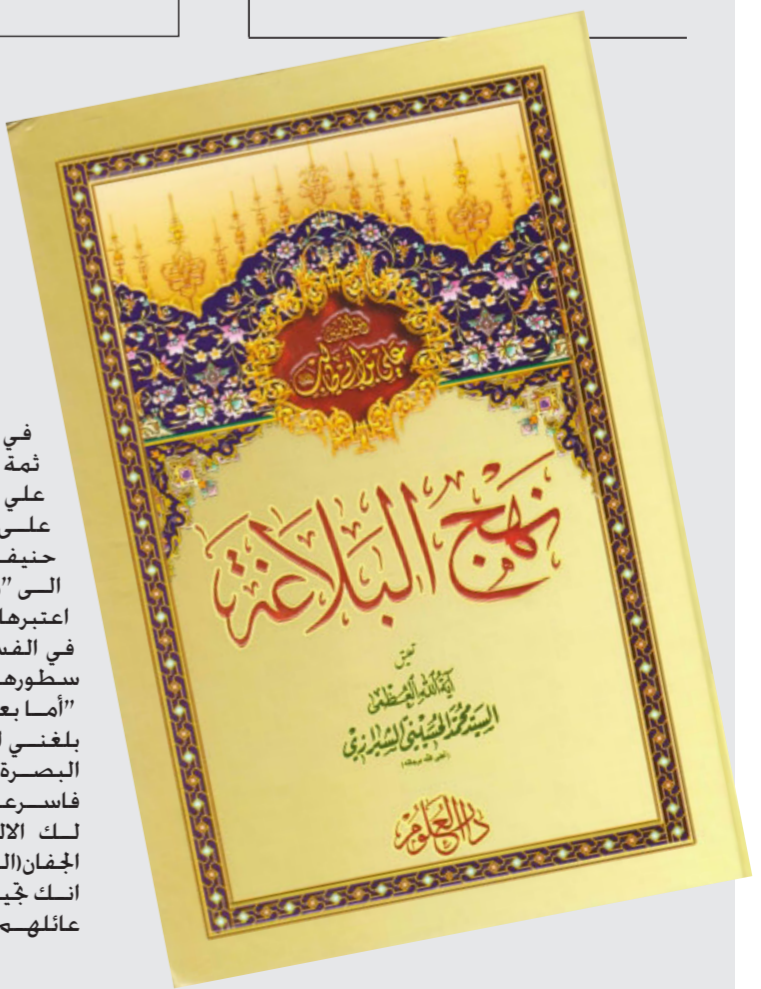 علي بن أبي طالب
نهج البلاغة
تعليق
آية الله العظمى
السيد محمد الحسيني الشيرازي
دار العلوم
في
ثمة
علي
علــى
حنيف
الــى ”
اعتبرها
في الفس
سطورها
”أمــا بعـ
بلغنــي ا
البصــرة
فاســرعـ
لــك الال
الجفان(الـ
انــك تجيـ
عائلهــم